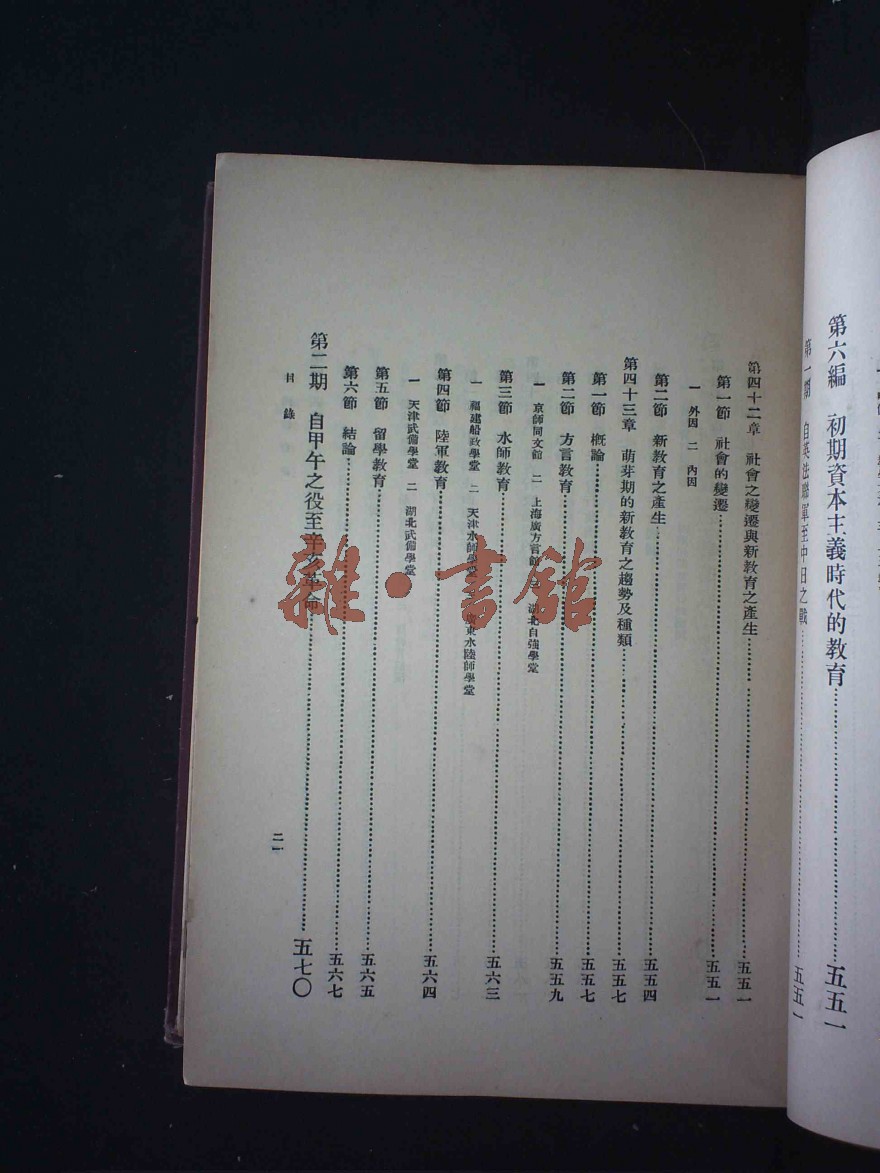 第六編　初期資本主義時代的教育……五五一
第一期　自英法聯軍至中日之戰……五五一
第四十二章　社會之變遷與新教育之產生……五五一
第一節　社會的變遷……五五一
一　外因　二　內因
第二節　新教育之產生……五五四
第四十三章　萌芽期的新教育之趨勢及種類……五五七
第一節　概論……五五七
第二節　方言教育……五五九
一　京師同文館　二　上海廣方言館　三　湖北自強學堂
第三節　水師教育……五六三
一　福建船政學堂　二　天津水師學堂　廣東水陸師學堂
第四節　陸軍教育……五六四
一　天津武備學堂　二　湖北武備學堂
第五節　留學教育……五六五
第六節　結論……五六七
第二期　自甲午之役至辛亥革命……五七〇
目錄
二一
雜·書館